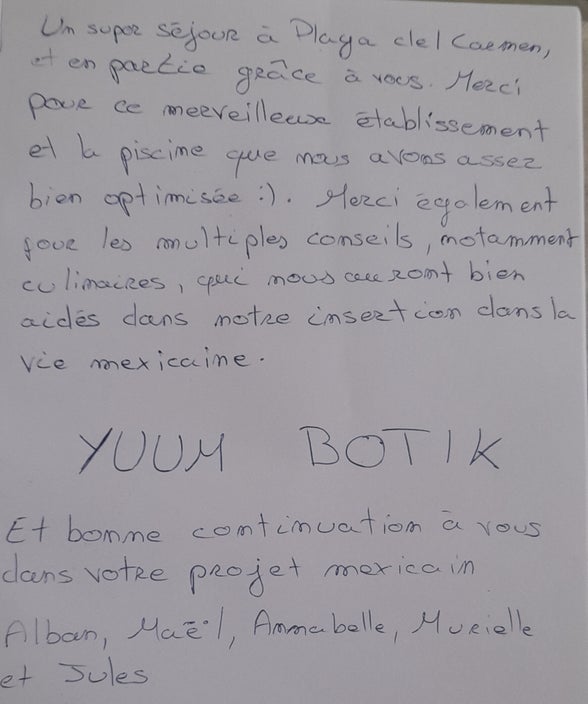 Un super séjour à Playa del Carmen,
et en partie grâce à vous. Merci
pour ce merveilleux établissement
et la piscine que nous avons assez
bien optimisée :). Merci également
pour les multiples conseils, notamment
culinaires, qui nous auront bien
aidés dans notre insertion dans la
vie mexicaine.
YUUM BOTIK
Et bonne continuation à vous
dans votre projet mexicain
Alban, Maël, Annabelle, Murielle
et Jules